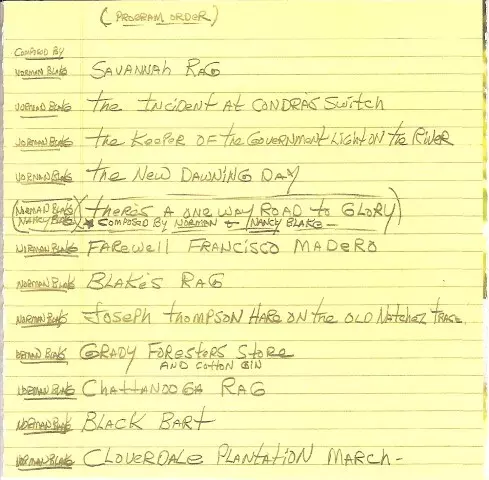 (PROGRAM ORDER)
COMPOSED BY
NORMAN BLAKE SAVANNAH RAG
NORMAN BLAKE the INCIDENT At CONDRA'S SWitCH
NORMAN BLAKE the KEEPER OF the GOVERNMENT LIGHT ON the RIVER
NORMAN BLAKE the NEW DAWNING DAY
(NORMAN BLAKE NANCY BLAKE) (tHERE'S A ONE WAY ROAD to GLORY)
* COMPOSED BY NORMAN & NANCY BLAKE -
NORMAN BLAKE FAREWELL FRANCISCO MADERO
NORMAN BLAKE BLAKE'S RAG
NORMAN BLAKE JOSEPH tHOMPSON HARE ON the OLD NAtCHEZ tRACE
NORMAN BLAKE GRADY FORESTERS StORE
AND COttON GIN
NORMAN BLAKE CHAttANOOGA RAG
NORMAN BLAKE BLACK BARt
NORMAN BLAKE CLOVERDALE PLANtAtiON MARCH -